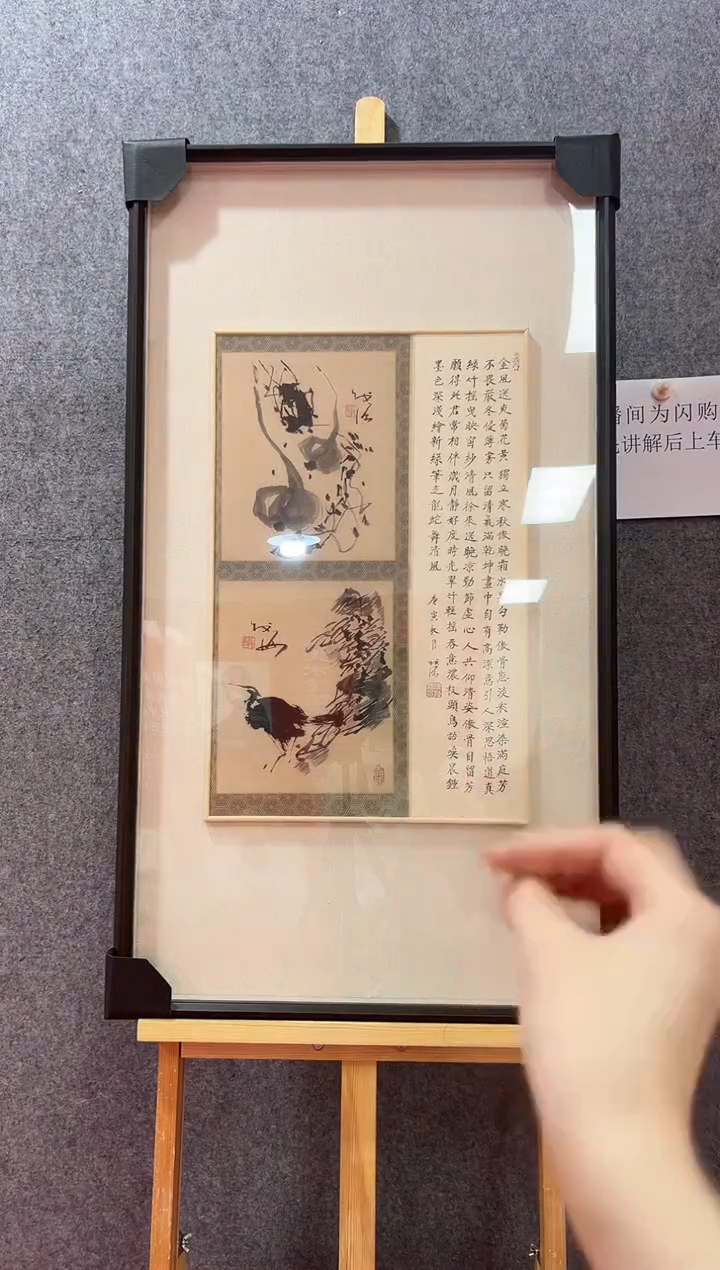 金風送爽菊花黃獨立寒秋傲晚霜
勾勒傲骨忽淡彩渲染滿庭芳
不畏嚴冬侵薄霧只留清氣滿乾坤畫中自有高潔意引人深思悟道真
綠竹搖曳映窗紗清風徐來送晚涼勁節虛心人共仰清姿傲骨自留芳
願得此君常相伴歲月靜好度時光翠竹輕搖春意濃枝頭鳥語喚晨鐘
墨色深淺繪新綠筆走龍蛇舞清風
庚寅秋月
播间为闪购
讲解后上车